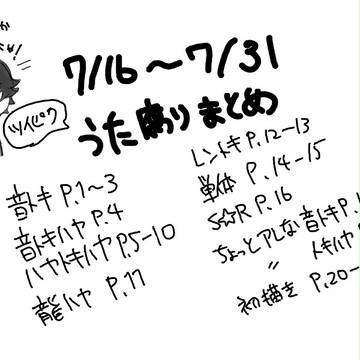 か
ツイピク
7/16〜7/31
うた腐りまとめ
音トキ P.1〜3
音トキハヤ P.4
ハヤトキハヤ P.5-10
龍ハヤ P.11
レントキ P.12-13
単体 P.14-15
S☆R P.16
ちょっとアレな音トキ P.1
〃 トキハヤ
初描き P.20-